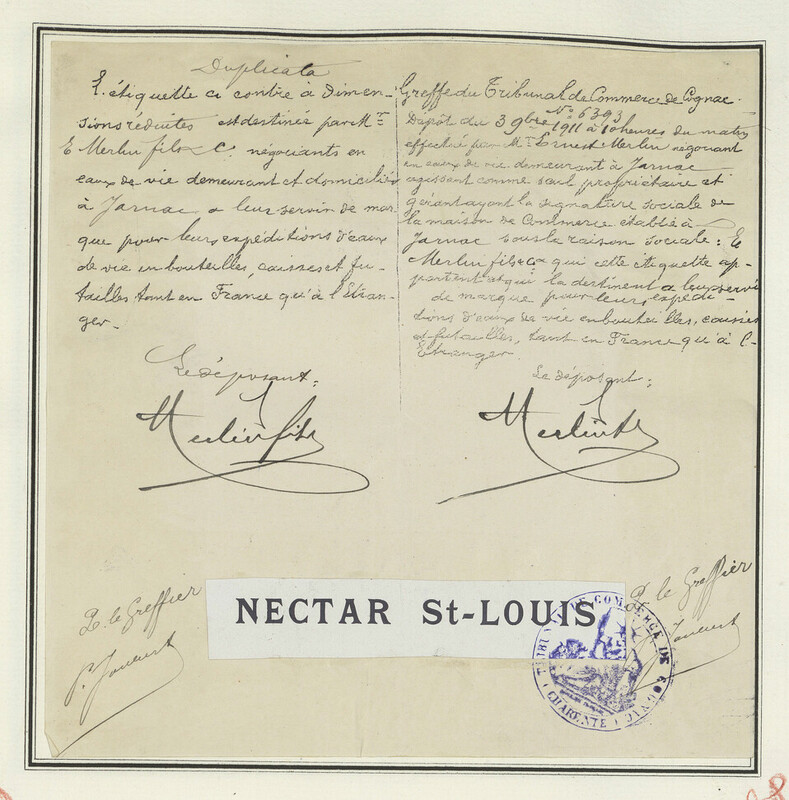 Duplicata
L'étiquette ci contre à Dimen-
sions reduites est destinée par Mr
E Merlin fils & Cie négociants en
eaux de vie demeurant et domiciliés
à Jarnac a leur servir de mar
que pour leurs expéditions d'eaux
de vie en bouteilles, caisses et fu-
tailles tant en France qu'à l'Etran-
ger.
Le déposant:
Merlin fils
P. le Greffier
Greffe du Tribunal de Commerce de Cognac.
No 6393
Dépôt du 3 9bre 1911 à 10 heures du matin
effectué par Mr Ernest Merlin négociant
en eaux de vie demeurant à Jarnac
agissant comme seul propriétaire et
gérant ayant la signature sociale de
la maison de Commerce établie à
Jarnac sous la raison sociale: E
Merlin fils & Ca qui cette étiquette ap-
partient et qui la destinent a leur servi
de marque pour leurs expédi-
tions d'eaux de vie en bouteilles, caisses
et futailles, tant en France qu'à l'-
Etranger.
Le déposant:
Merlin fils
P. le Greffier
NECTAR St-LOUIS
TRIBUNAL DE COMMERCE DE COGNAC
CHARENTE